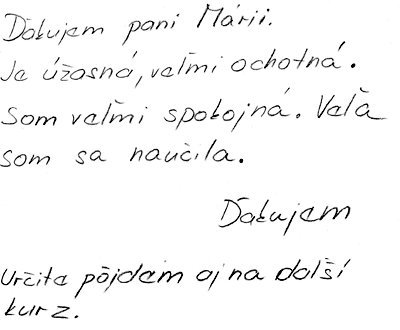 Ďakujem pani Márii.
Je úžasná, veľmi ochotná.
Som veľmi spokojná. Veľa
som sa naučila.
Ďakujem
Určite pôjdem aj na ďalší
kurz.